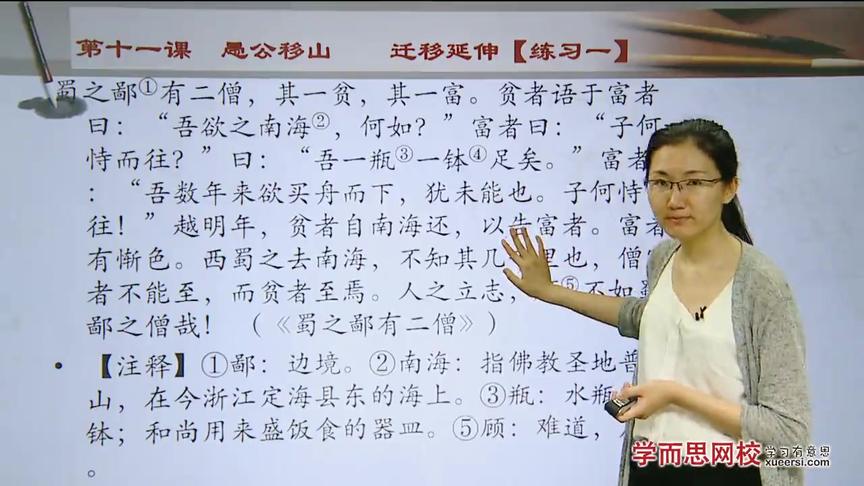 第十一课 愚公移山 迁移延伸【练习一】
蜀之鄙①有二僧，其一贫，其一富。贫者语于富者
曰：“吾欲之南海②，何如？”富者曰：“子何
恃而往？”曰：“吾一瓶③一钵④足矣。”富者
：“吾数年来欲买舟而下，犹未能也。子何恃
往！”越明年，贫者自南海还，以告富者。富者
有惭色。西蜀之去南海，不知其几 里也，僧
者不能至，而贫者至焉。人之立志， ⑤不如蜀
鄙之僧哉！（《蜀之鄙有二僧》）
• 【注释】①鄙：边境。②南海：指佛教圣地普
山，在今浙江定海县东的海上。③瓶：水瓶
钵；和尚用来盛饭食的器皿。⑤顾：难道，
。
学而思网校 学习有意思
xueersi.com